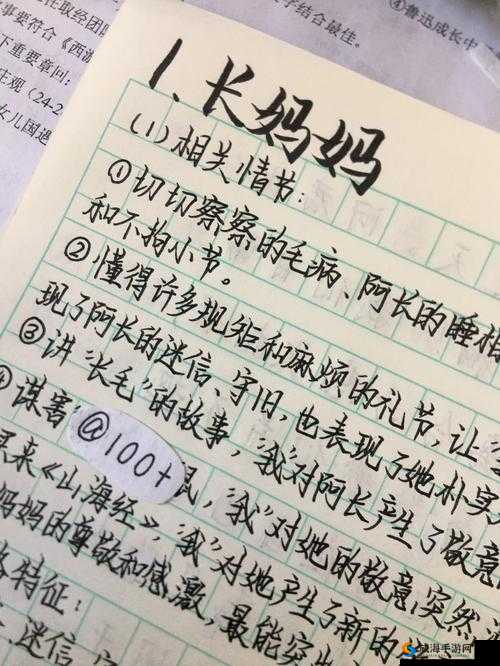 ④鲁迅成长中
子结合最佳。
在取经团队
事要符合《西游
下重要章回:
主观(24-2
女儿国遇
1、长妈妈
(1)相关情节:
①切切察察的毛病、阿长的睡相
和不拍小节。
②懂得许多规矩和麻烦的礼节,让
现了阿长的迷信、守旧,也表现了她朴实
③讲“长毛”的故事,“我”对阿长产生了敬意
④谋害 鼠,“我”对她的敬意突然
@100+
买来《山海经》,“我”对她产生了新的
妈妈的尊敬和感激,最能突出
格特征:
迷信
咸海手游网